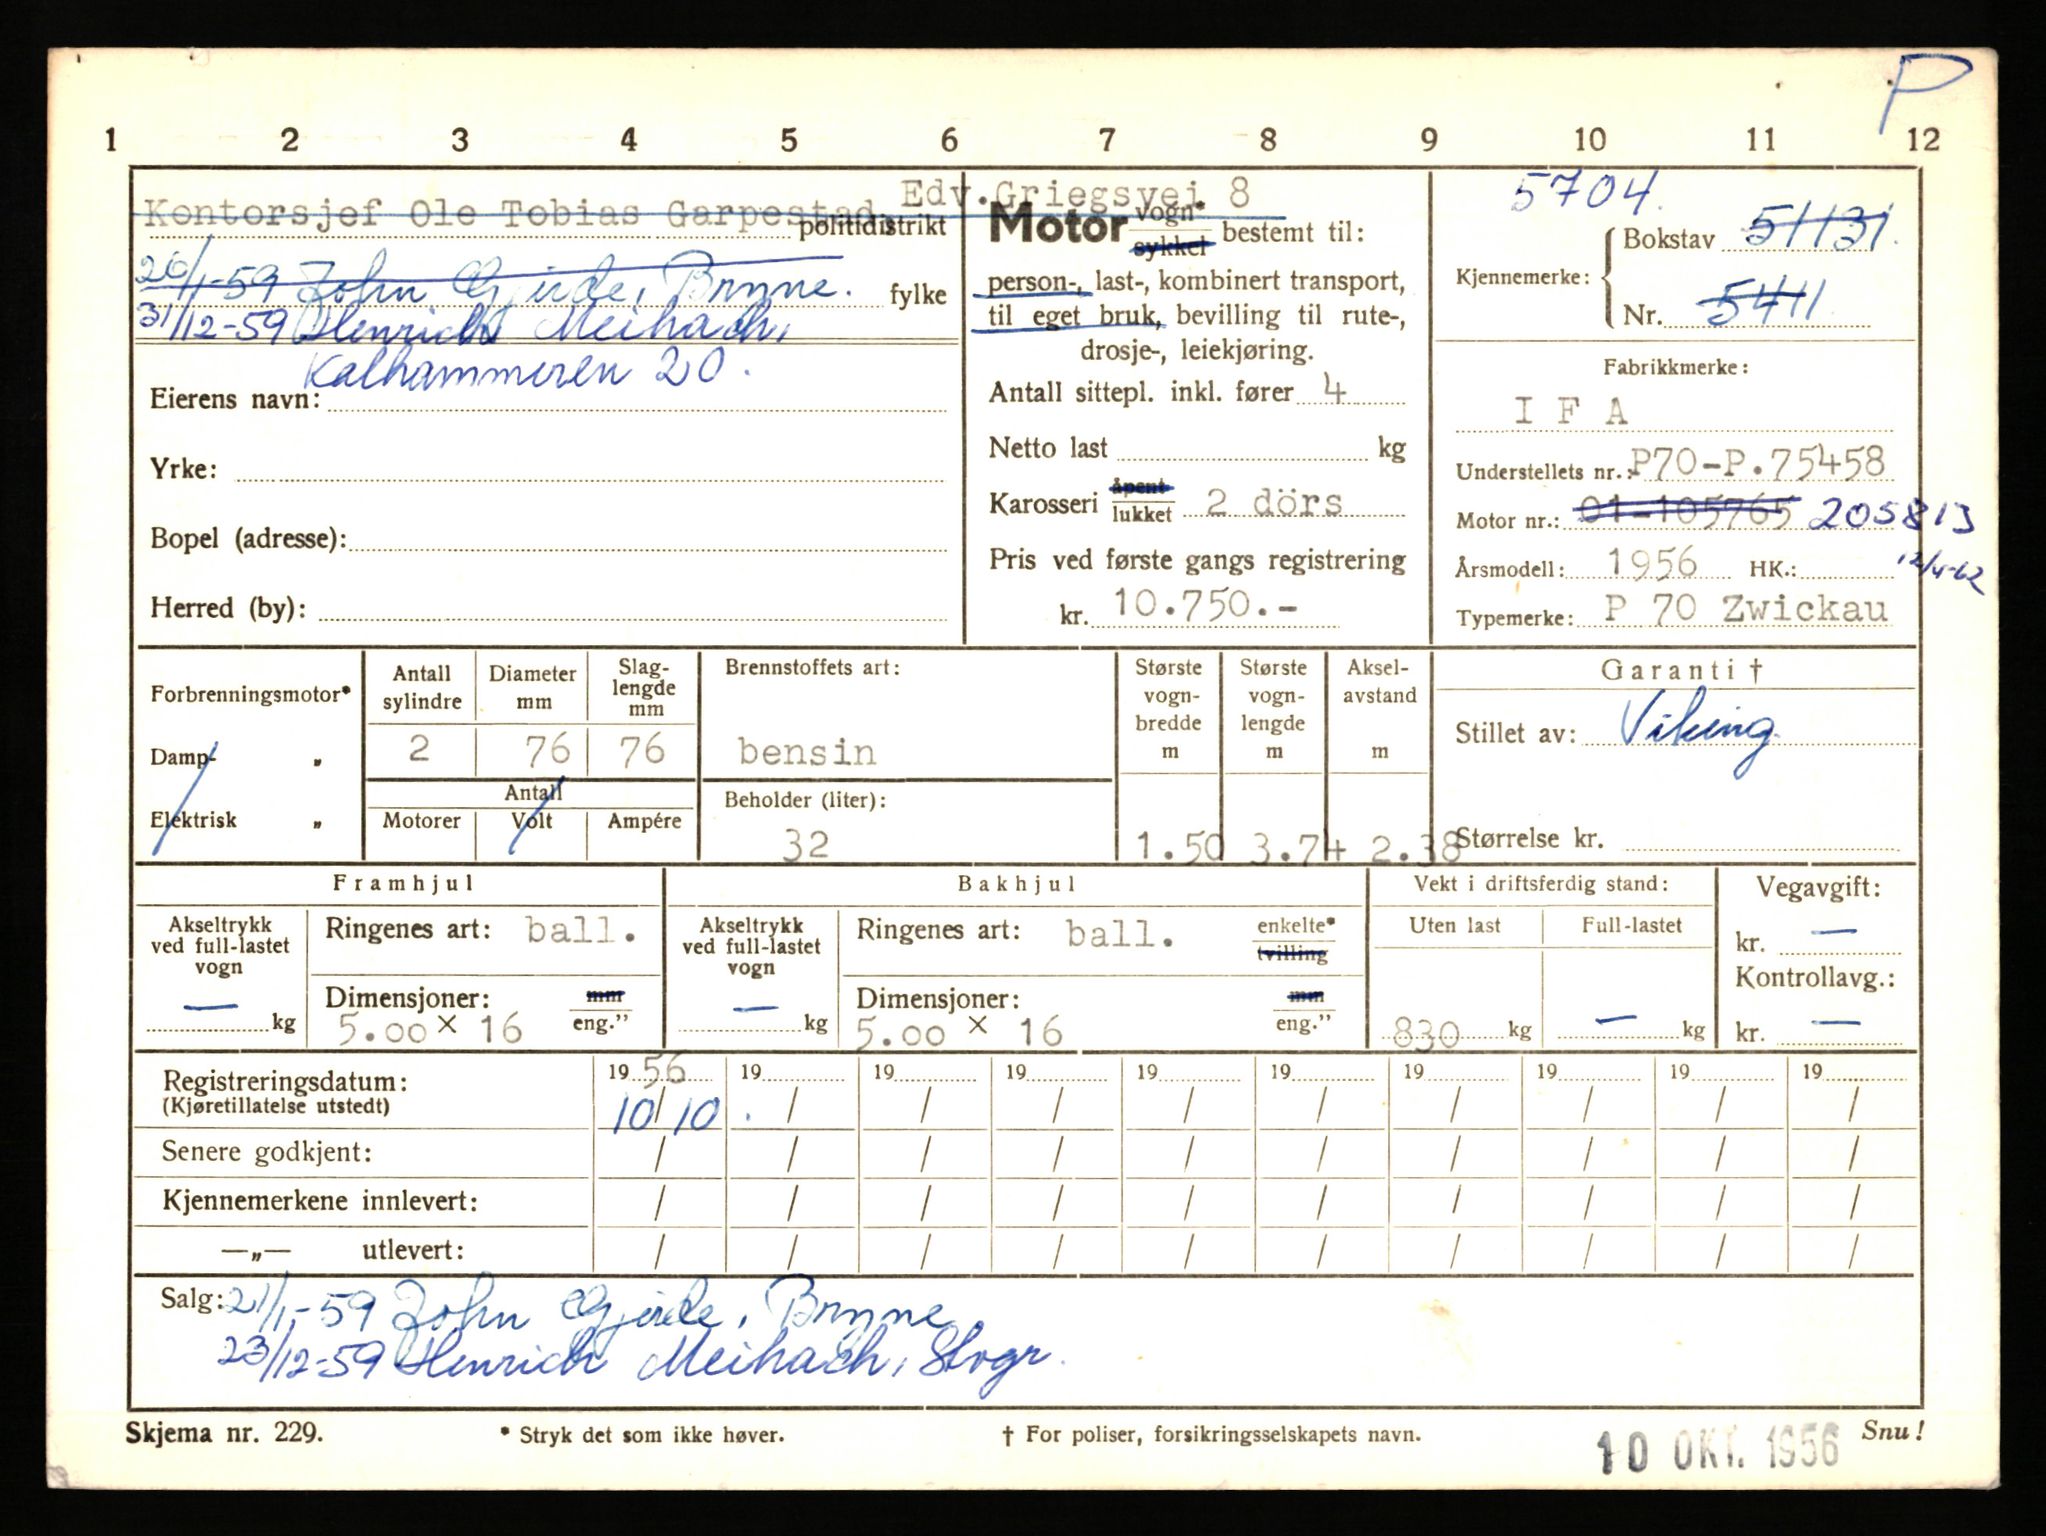 P
1 2 3 4 5 6 7 8 9 10 11 12
Kontorsjef Ole Tobias Garpestad Edv.Griegsvei 8
politidistrikt
26/1-59 John Gjerde, Bryne.
fylke
31/12-59 Henrich Meihach,
Kalhammeren 20.
Eierens navn:
Yrke:
Bopel (adresse):
Herred (by):
Motor vogn* sykkel bestemt til:
person-, last-, kombinert transport,
til eget bruk, bevilling til rute-,
drosje-, leiekjøring.
Antall sittepl. inkl. fører 4
Netto last kg
Karosseri åpent lukket 2 dörs
Pris ved første gangs registrering
kr. 10.750.-
5704.
Kjennemerke: Bokstav 51131.
Nr. 5411
Fabrikkmerke:
I F A
Understellets nr.: P70-P.75458
Motor nr.: 01-105765 205813
12/4-62
Årsmodell: 1956 HK.:
Typemerke: P 70 Zwickau
Forbrenningsmotor*
Damp- „
Elektrisk „
Antall sylindre
2
Diameter mm
76
Slag-lengde mm
76
Antall
Motorer Volt Ampére
Brennstoffets art:
bensin
Beholder (liter):
32
Største vogn-bredde m
1.50
Største vogn-lengde m
3.74
Aksel-avstand m
2.38
Garanti †
Stillet av: Viking
Størrelse kr.
Framhjul
Akseltrykk ved full-lastet vogn
— kg
Ringenes art: ball.
Dimensjoner: mm
5.00 × 16 eng.”
Bakhjul
Akseltrykk ved full-lastet vogn
— kg
Ringenes art: ball. enkelte* tvilling
Dimensjoner: mm
5.00 × 16 eng.”
Vekt i driftsferdig stand:
Uten last Full-lastet
830 kg — kg
Vegavgift:
kr. —
Kontrollavg.:
kr. —
Registreringsdatum: 19 56 19 19 19 19 19 19 19 19 19
(Kjøretillatelse utstedt) 10/10 / / / / / / / / /
Senere godkjent: / / / / / / / / / /
Kjennemerkene innlevert: / / / / / / / / / /
—„— utlevert: / / / / / / / / / /
Salg: 21/1-59 John Gjerde, Bryne
23/12-59 Henrich Meihach, Stvgr.
Skjema nr. 229. * Stryk det som ikke høver. † For poliser, forsikringsselskapets navn. 10 OKT. 1956 Snu!